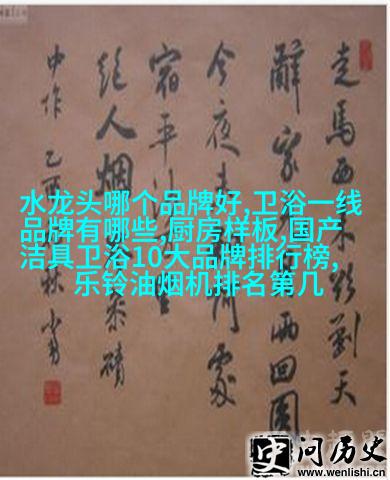 水龙头哪个品牌好,卫浴一线
品牌有哪些,厨房样板,国产
洁具卫浴10大品牌排行榜,
乐铃油烟机排名第几
走馬西来 到天
辭家 兩回圓
今夜未 處
宿平沙
絕人烟 参磧
中作 乙酉 秋
史问历史
www.wenlishi.cn